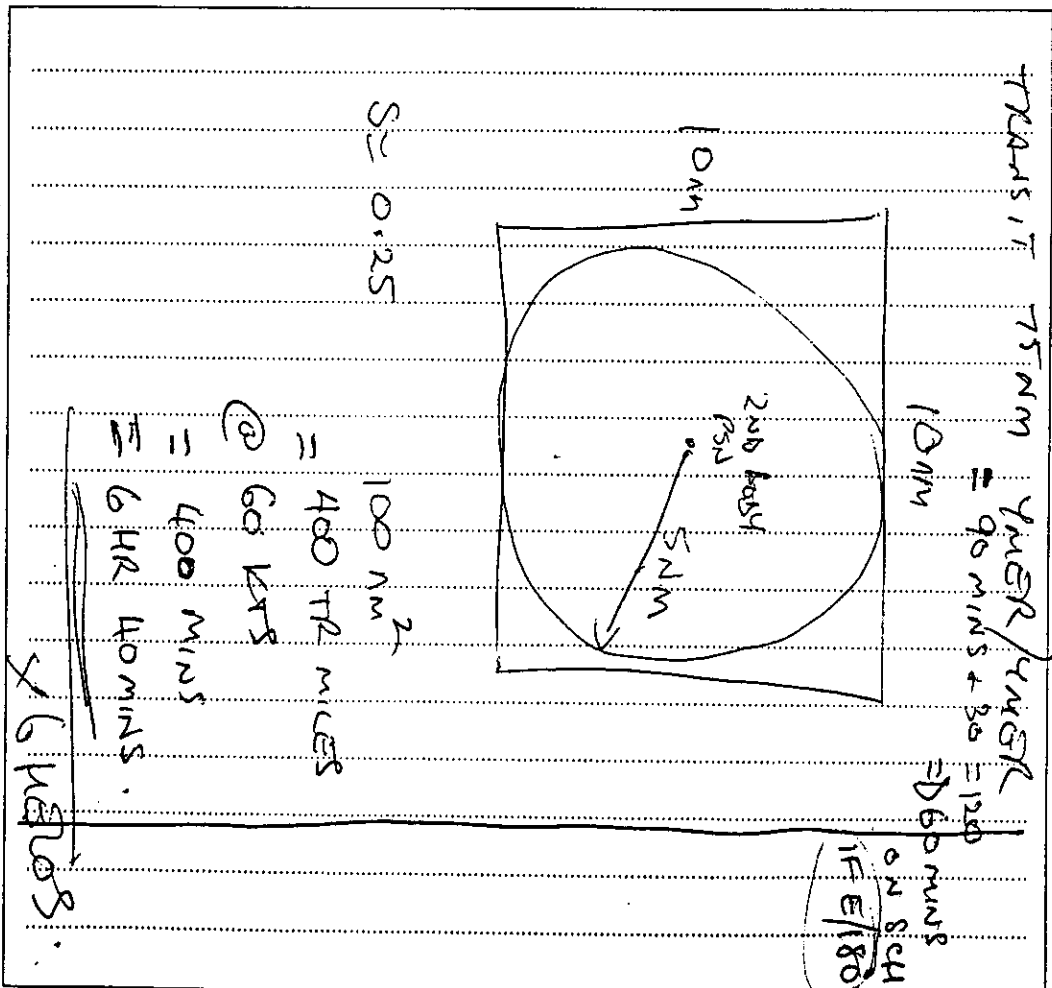 TRANSIT 75 NM YMER/YMER
= 90 MINS + 30 = 120
=D 60 MINS
ON SCH
IF E/180
10 NM
10 NM
2ND BODY
PSN
5NM
S = 0.25
100 NM²
= 400 TR MILES
@ 60 KTS
= 400 MINS
= 6 HR 40 MINS
X 6 HELOS